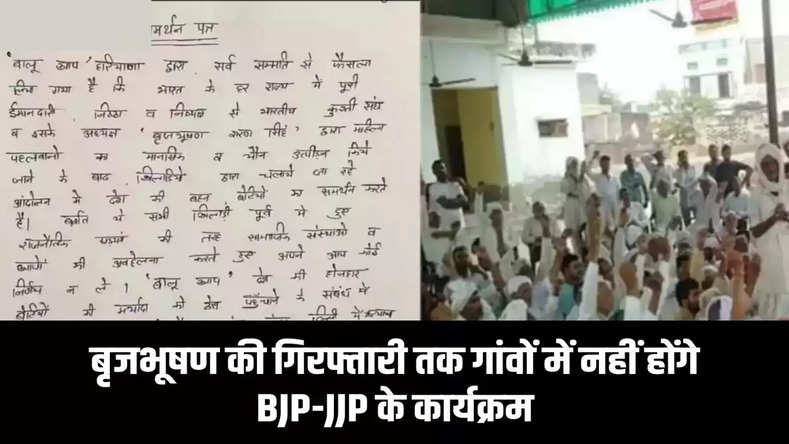 मर्थन पत्र
'बालू खाप' हरियाणा द्वारा सर्व सम्मति से फैसला
लिया गया है कि भारत के हर राज्य में पूरी
ईमानदारी, निष्ठा व निष्पक्ष से भारतीय कुश्ती संघ
व इसके अध्यक्ष 'बृजभूषण शरण सिंह' द्वारा महिला
पहलवानों का मानसिक व यौन उत्पीड़न किये
जाने के बाद खिलाड़ियों द्वारा चलाये जा रहे
आंदोलन में देश की बहन बेटियों का समर्थन करते
है। बशर्त ये सभी खिलाड़ी पूर्व में हुए
राजनैतिक की तरह सामाजिक संस्थाओं व
खापों की अवहेलना करते हुए अपने आप कोई
निर्णय न लें। 'बालू खाप' देश की होनहार
बेटियों की मर्यादा को ठेस पहुँचाने के संबंध में
बृजभूषण की गिरफ्तारी तक गांवों में नहीं होंगे
BJP-JJP के कार्यक्रम